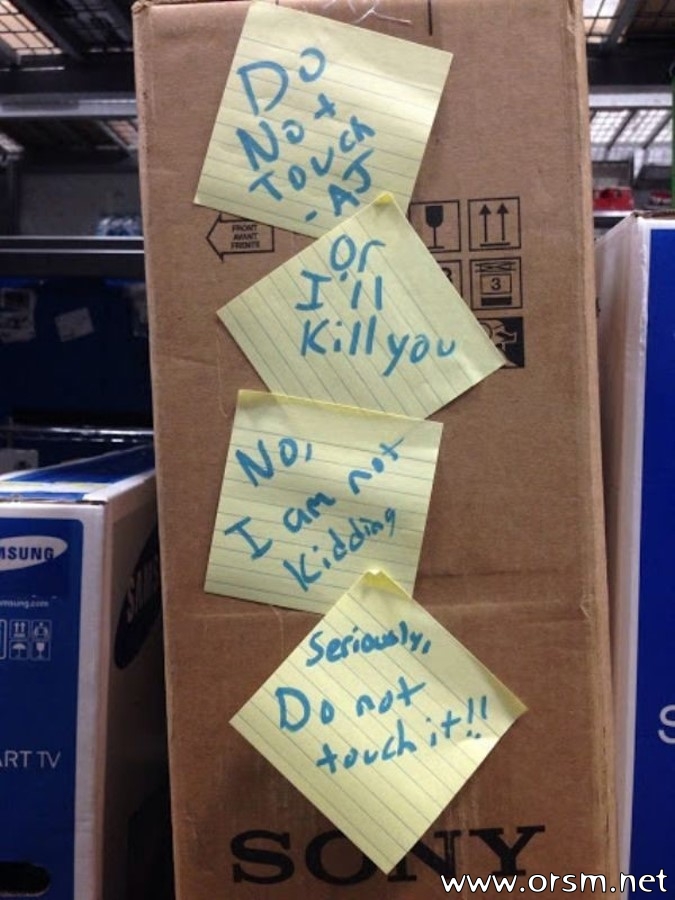 Do
Not
Touch
-AJ
FRONT
AVANT
FRENTE
Or
I'll
Kill you
3
No,
I am not
Kidding
Seriously,
Do not
touch it!!
SONY
MSUNG
msung.com
ART TV
SAMS
S
www.orsm.net